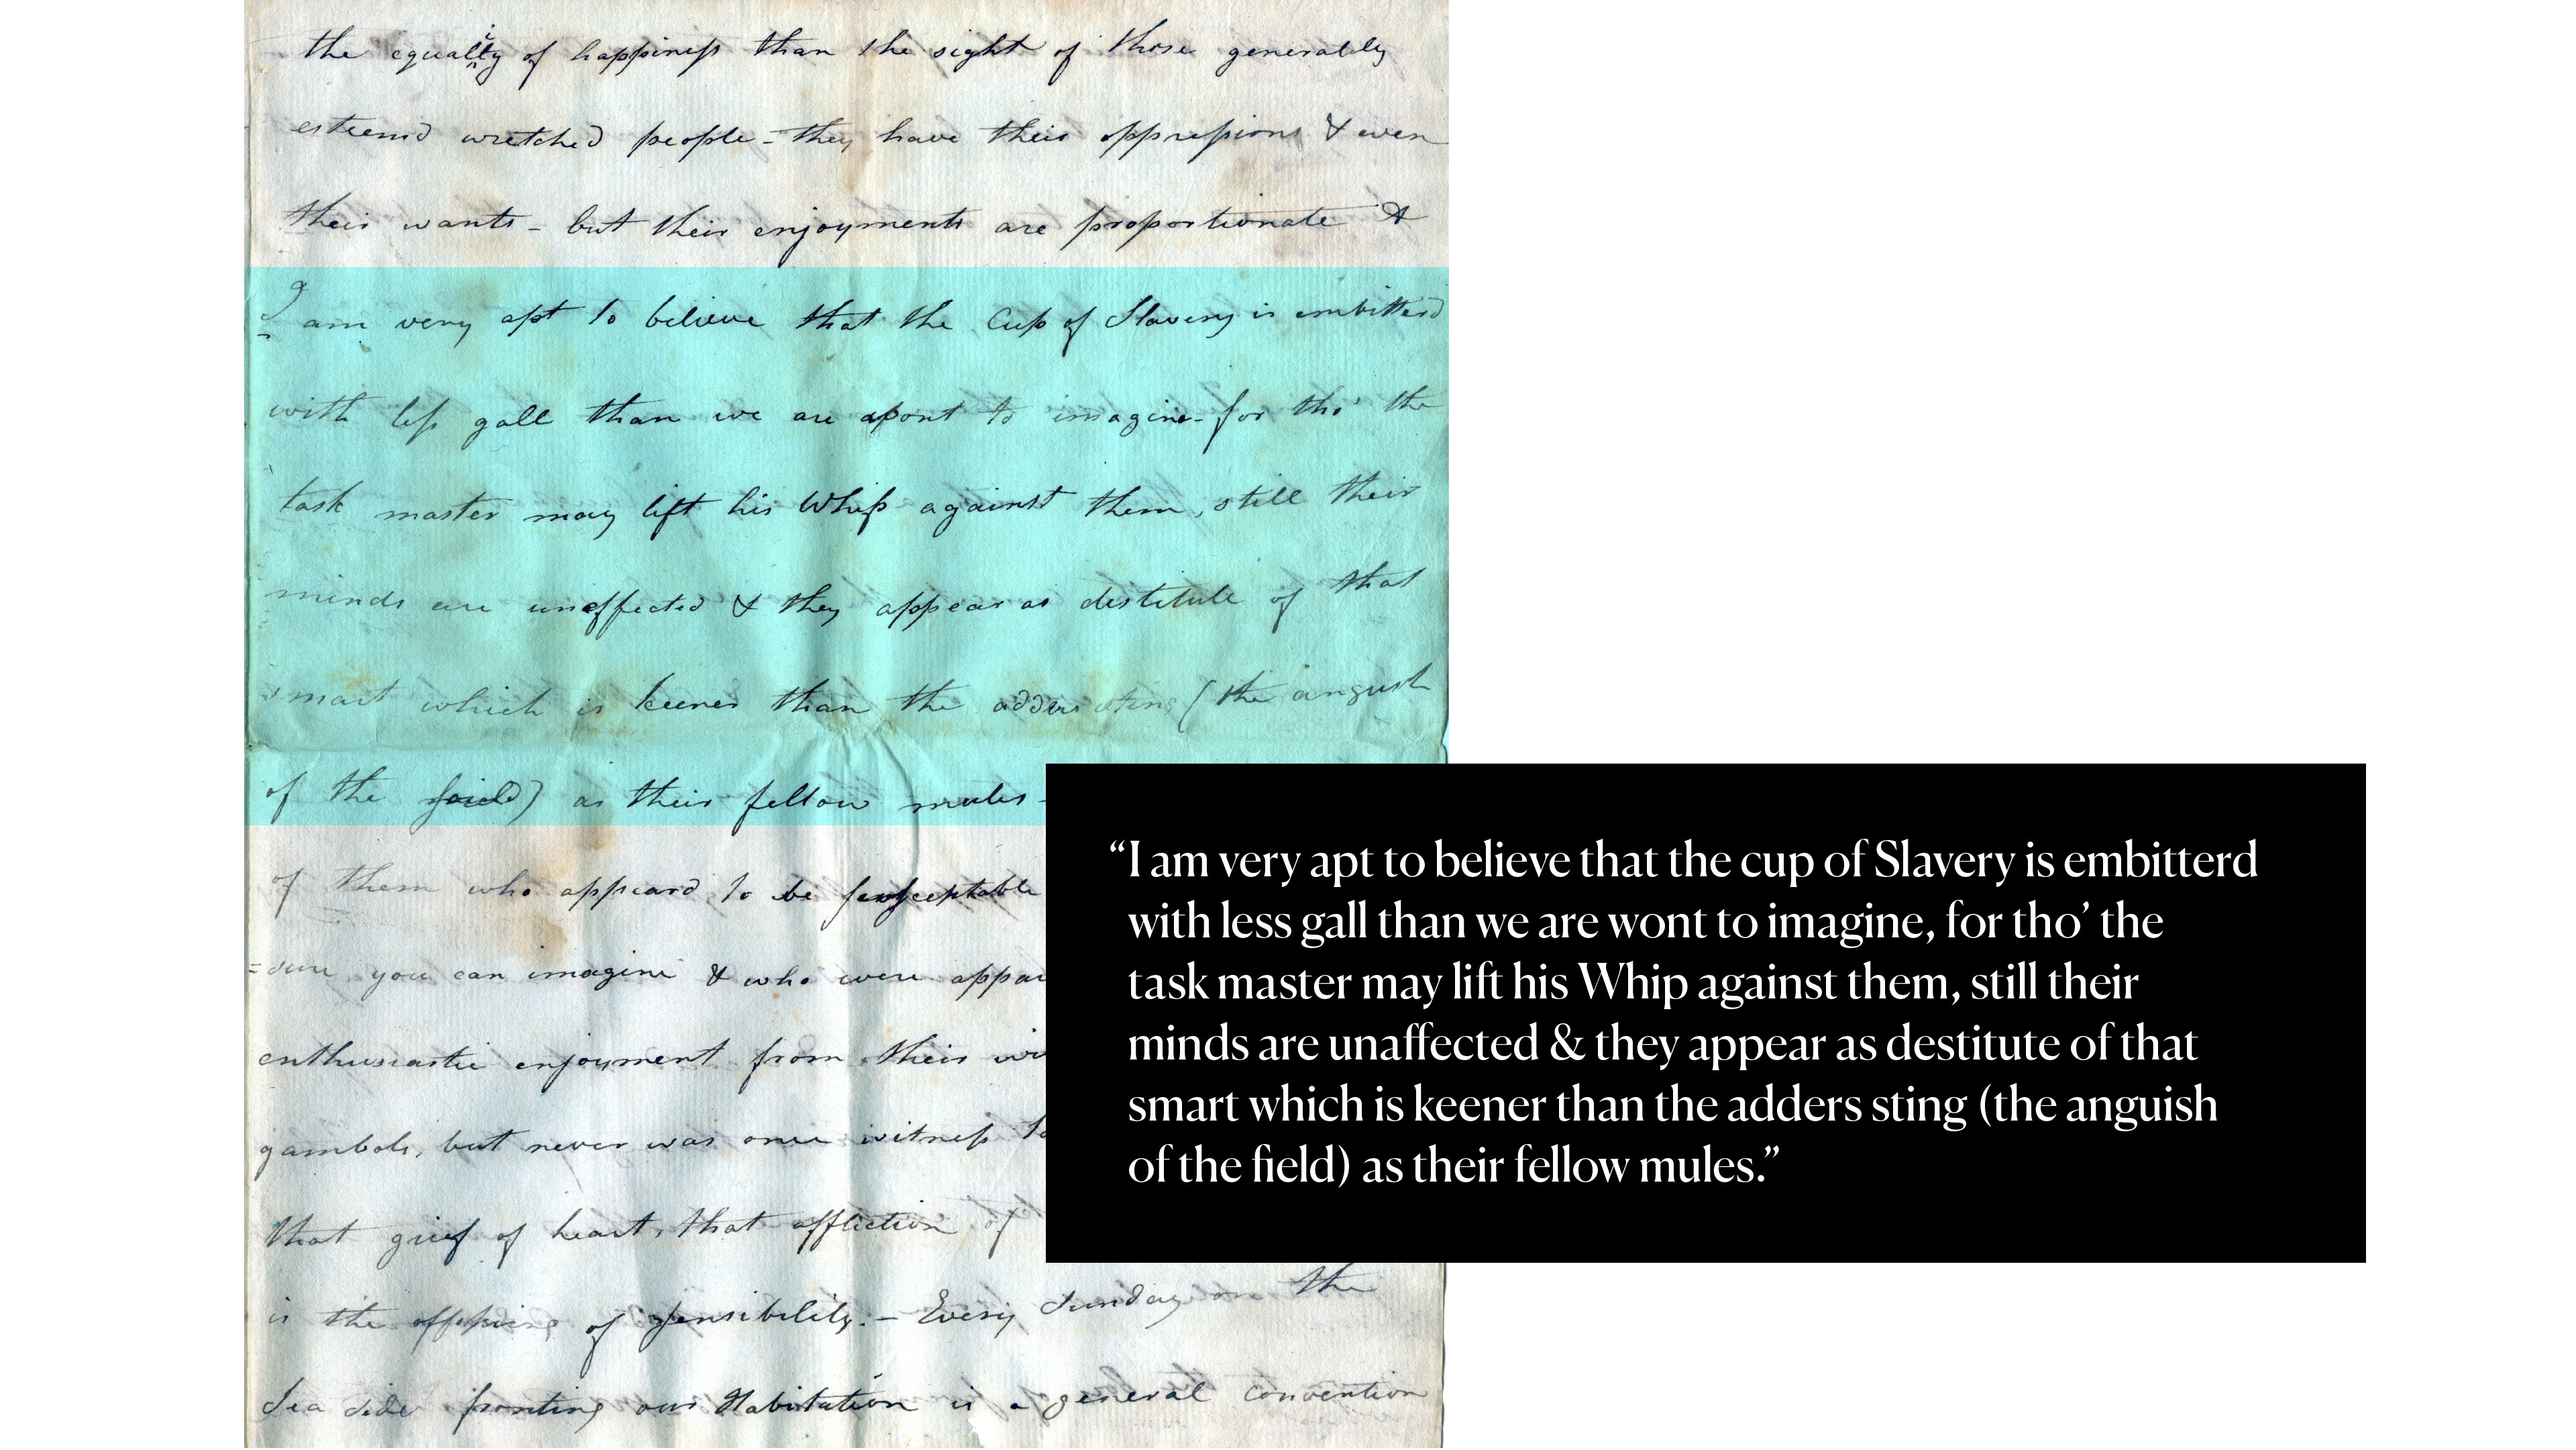 the equality of happiness than the sight of those generally
esteemd wretched people - they have their oppressions & even
their wants - but their enjoyments are proportionate &
I am very apt to believe that the Cup of Slavery is embitterd
with less gall than we are wont to imagine - for tho' the
task master may lift his Whip against them, still their
minds are uneffected & they appear as destitute of that
smart which is keener than the adders sting (the angush
of the ) as their fellow mules -
of them who appeard to be susceptable
=sure you can imagine & who were appar
enthusiastic enjoyment from their wi
gambols, but never was once witness to
that grief of heart, that affliction of
is the offspring of sensibility. - Every Sunday on the
Sea side fronting our Habitation is a general convention
“I am very apt to believe that the cup of Slavery is embitterd
with less gall than we are wont to imagine, for tho’ the
task master may lift his Whip against them, still their
minds are unaffected & they appear as destitute of that
smart which is keener than the adders sting (the anguish
of the field) as their fellow mules.”